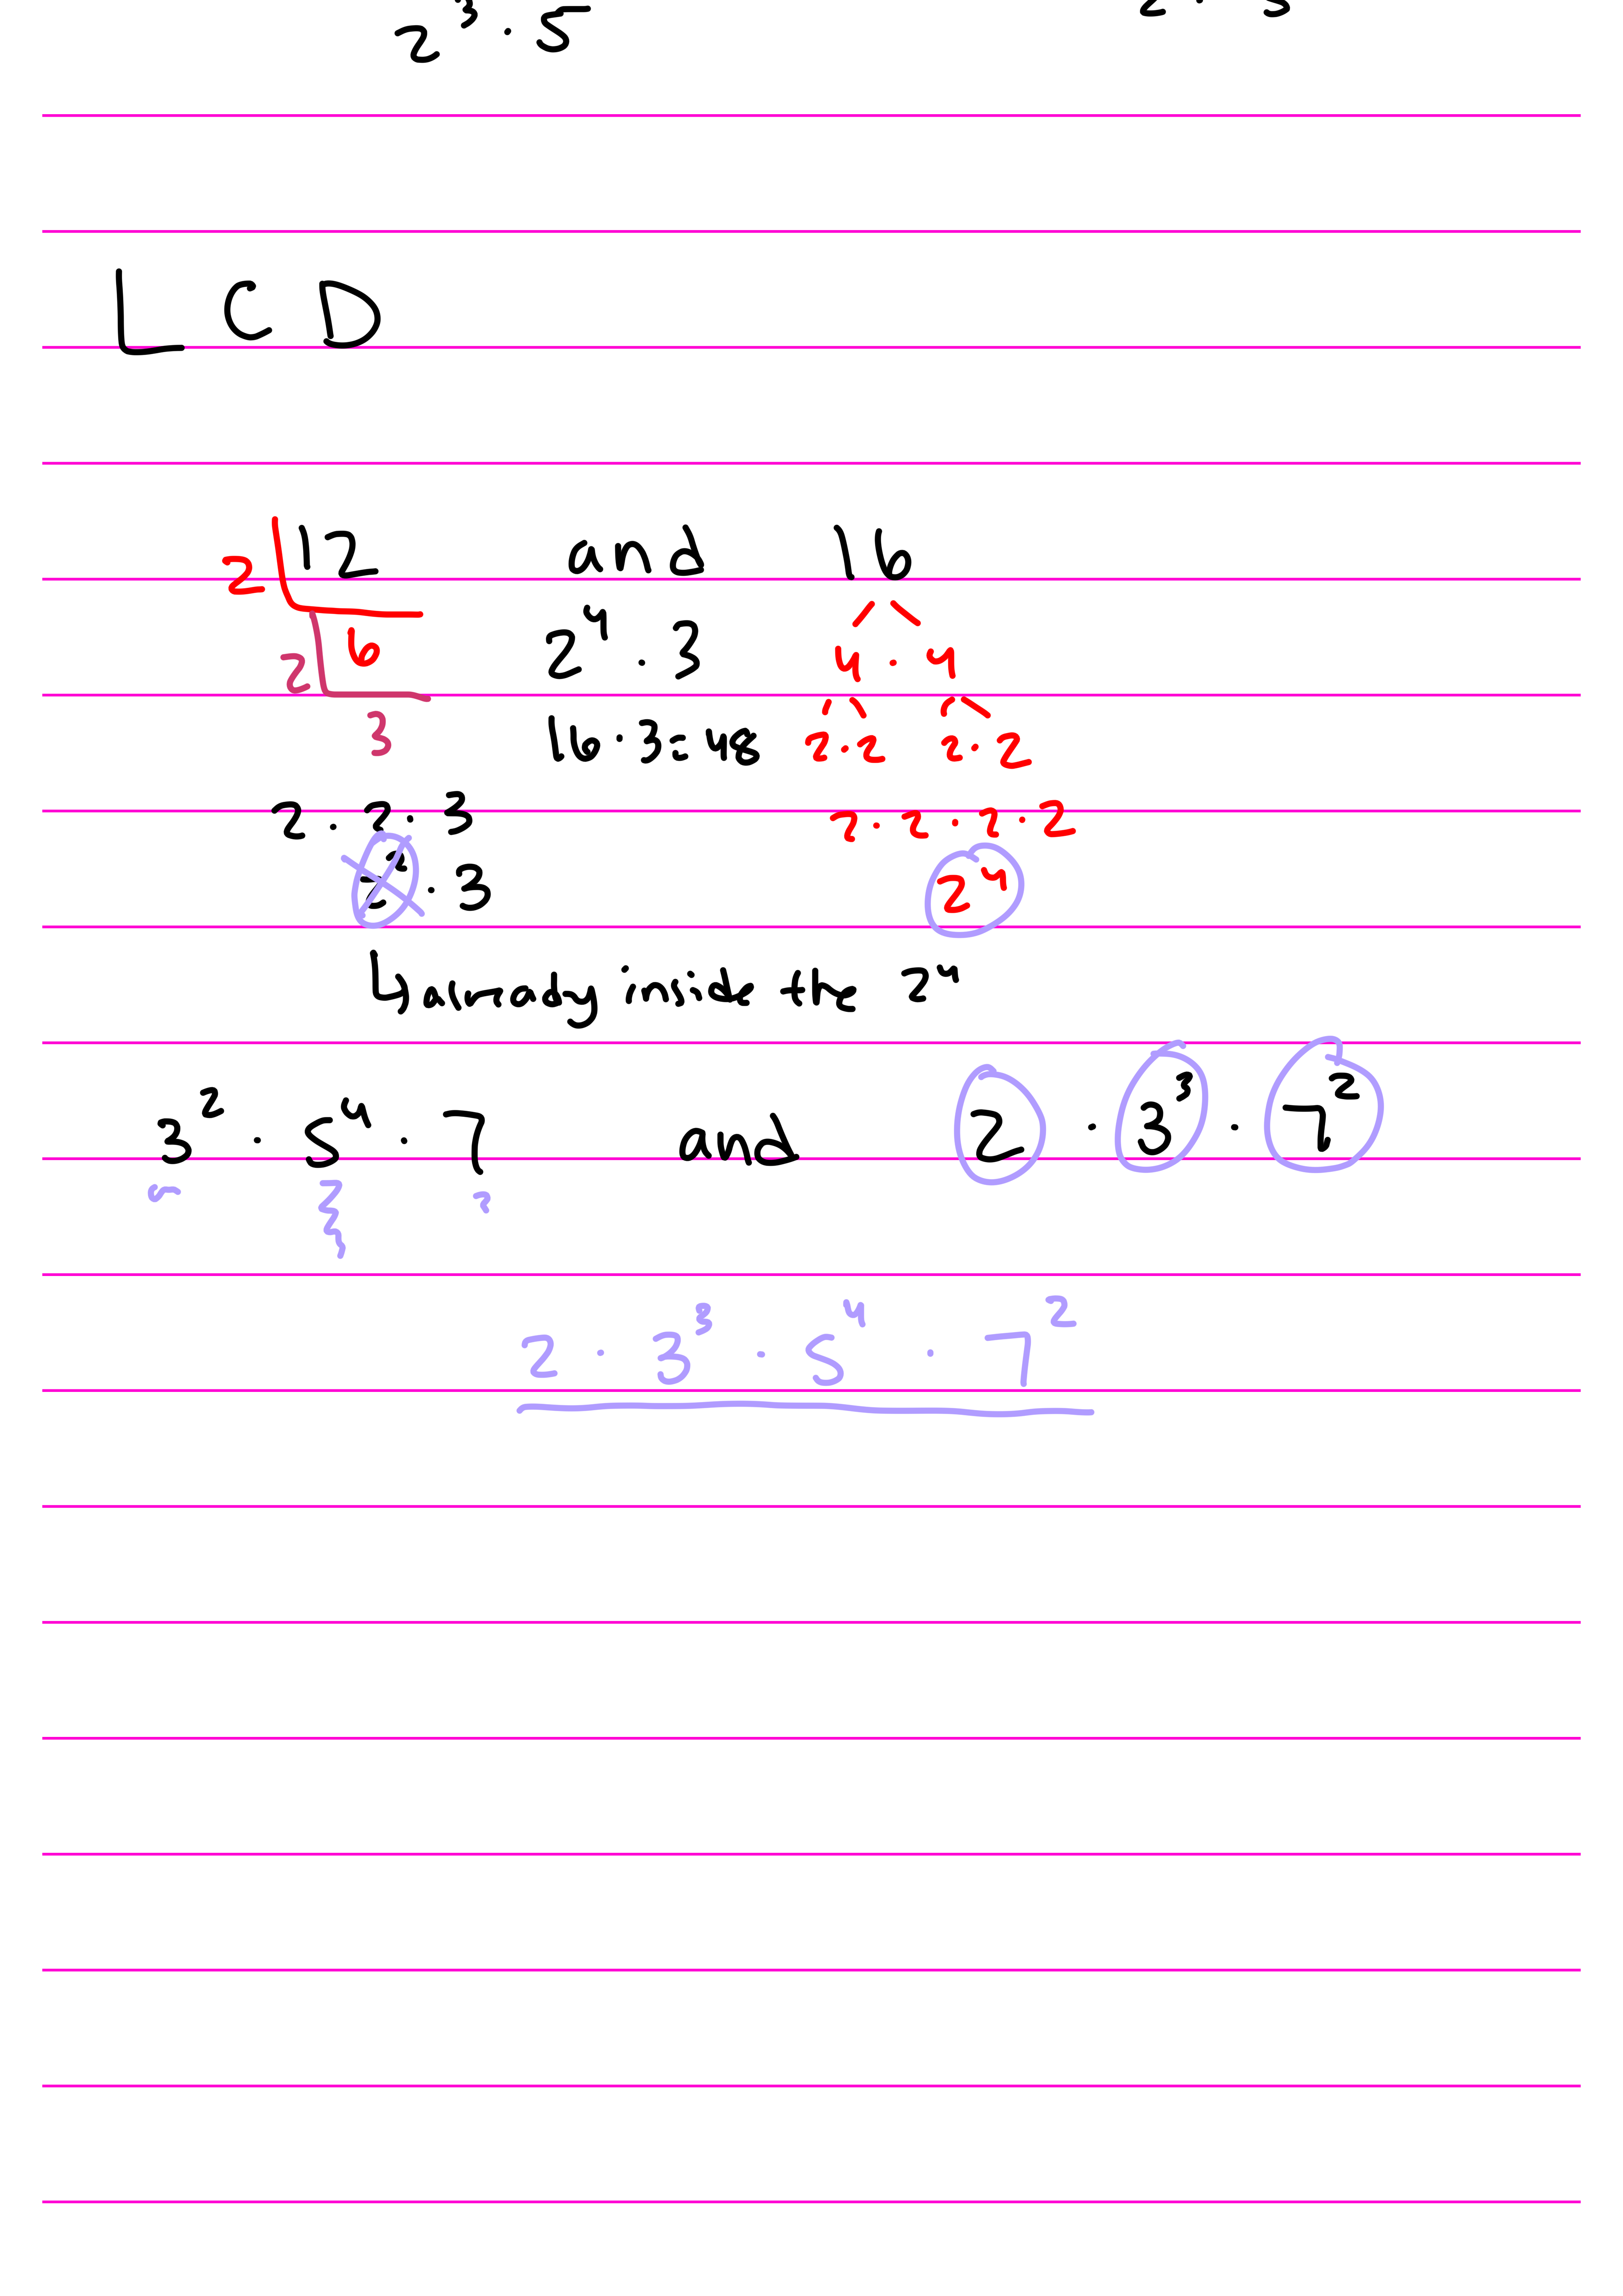 2³ · 5
L C D
12 and 16
2
6 2⁴ · 3 4 · 4
2
3 16 · 3 = 48 2 · 2 2 · 2
2 · 2 · 3 2 · 2 · 2 · 2
2² · 3 2⁴
↳ already inside the 2⁴
3² · 5⁴ · 7 and 2 · 3³ · 7²
2 · 3³ · 5⁴ · 7²